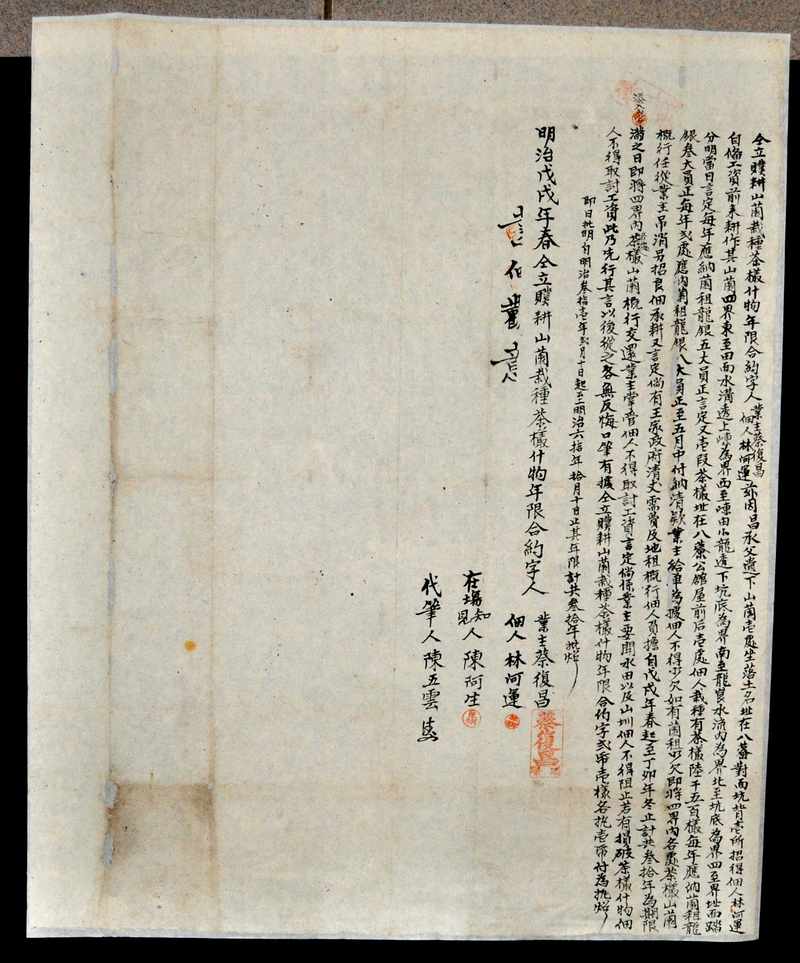 仝立贌耕山薗栽種茶欉什物年限合約字人業主蔡復昌佃人林阿運茲因昌承父遺下山薗壱處坐落土名址在八藔對面坑背壱所招得佃人林阿運
自俻工資前來耕作其山薗四界東至田面水溝透上崠為界西至崠由小龍透下坑底為界南至龍崀水流內為界北至坑底為界四至界址面踏
分明當日言定每年應納薗租龍銀五大員正言定又壱段茶欉址在八藔公舘屋前后壱處佃人栽種有茶欉陸千五百欉每年應納薗租龍
銀叁大員正每年弍處應納薗租龍銀八大員正至五月中付納清款業主給單為據佃人不得少欠如有薗租少欠即將四界內各處茶欉山薗
概行任從業主吊消另招良佃承耕又言定倘有王家政府清丈需費及地租概行佃人負擔自戊戌年春起至丁卯年冬止計共叁拾年為期限
滿之日即將四界內茶欉山薗概行交還業主掌管佃人不得取討工資言定倘係業主要開水田以及山圳佃人不得阻止若有損破茶欉什物佃
人不得取討工資此乃先行其言以後從之各無反悔口筆有據仝立贌耕山薗栽種茶欉什物年限合約字弍帋壱樣各执壱帋付為执炤
即日批明自明治叁拾壱年弍月十日起至明治六拾年拾月十日止其年限計共叁拾年批炤
明治戊戌年春仝立贌耕山薗栽種茶欉什物年限合約字人
業主蔡復昌
佃人林阿運
在場知見人陳阿生
代筆人陳五雲
蔡復昌